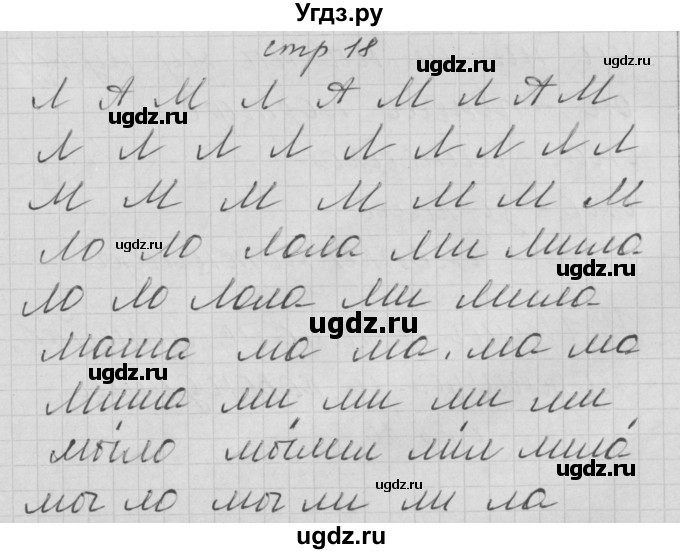 Угдз.ру
стр 18
Л А М Л А М Л А М
Л Л Л Л Л Л Л Л Л
М М М М М М М
Ло Ло Лола Ми Мила
Ло Ло Лола Ми Мила
Маша Ма Ма, Ма Ма
Миша Ми Ми Ми Ми
мы́ло мы́ли мил мила́
мы ло мы ли ми ла
ugdz.ru
ugdz.ru
ugdz.ru
ugdz.ru
ugdz.ru
ugdz.ru
ugdz.ru
ugdz.ru
ugdz.ru
ugdz.ru